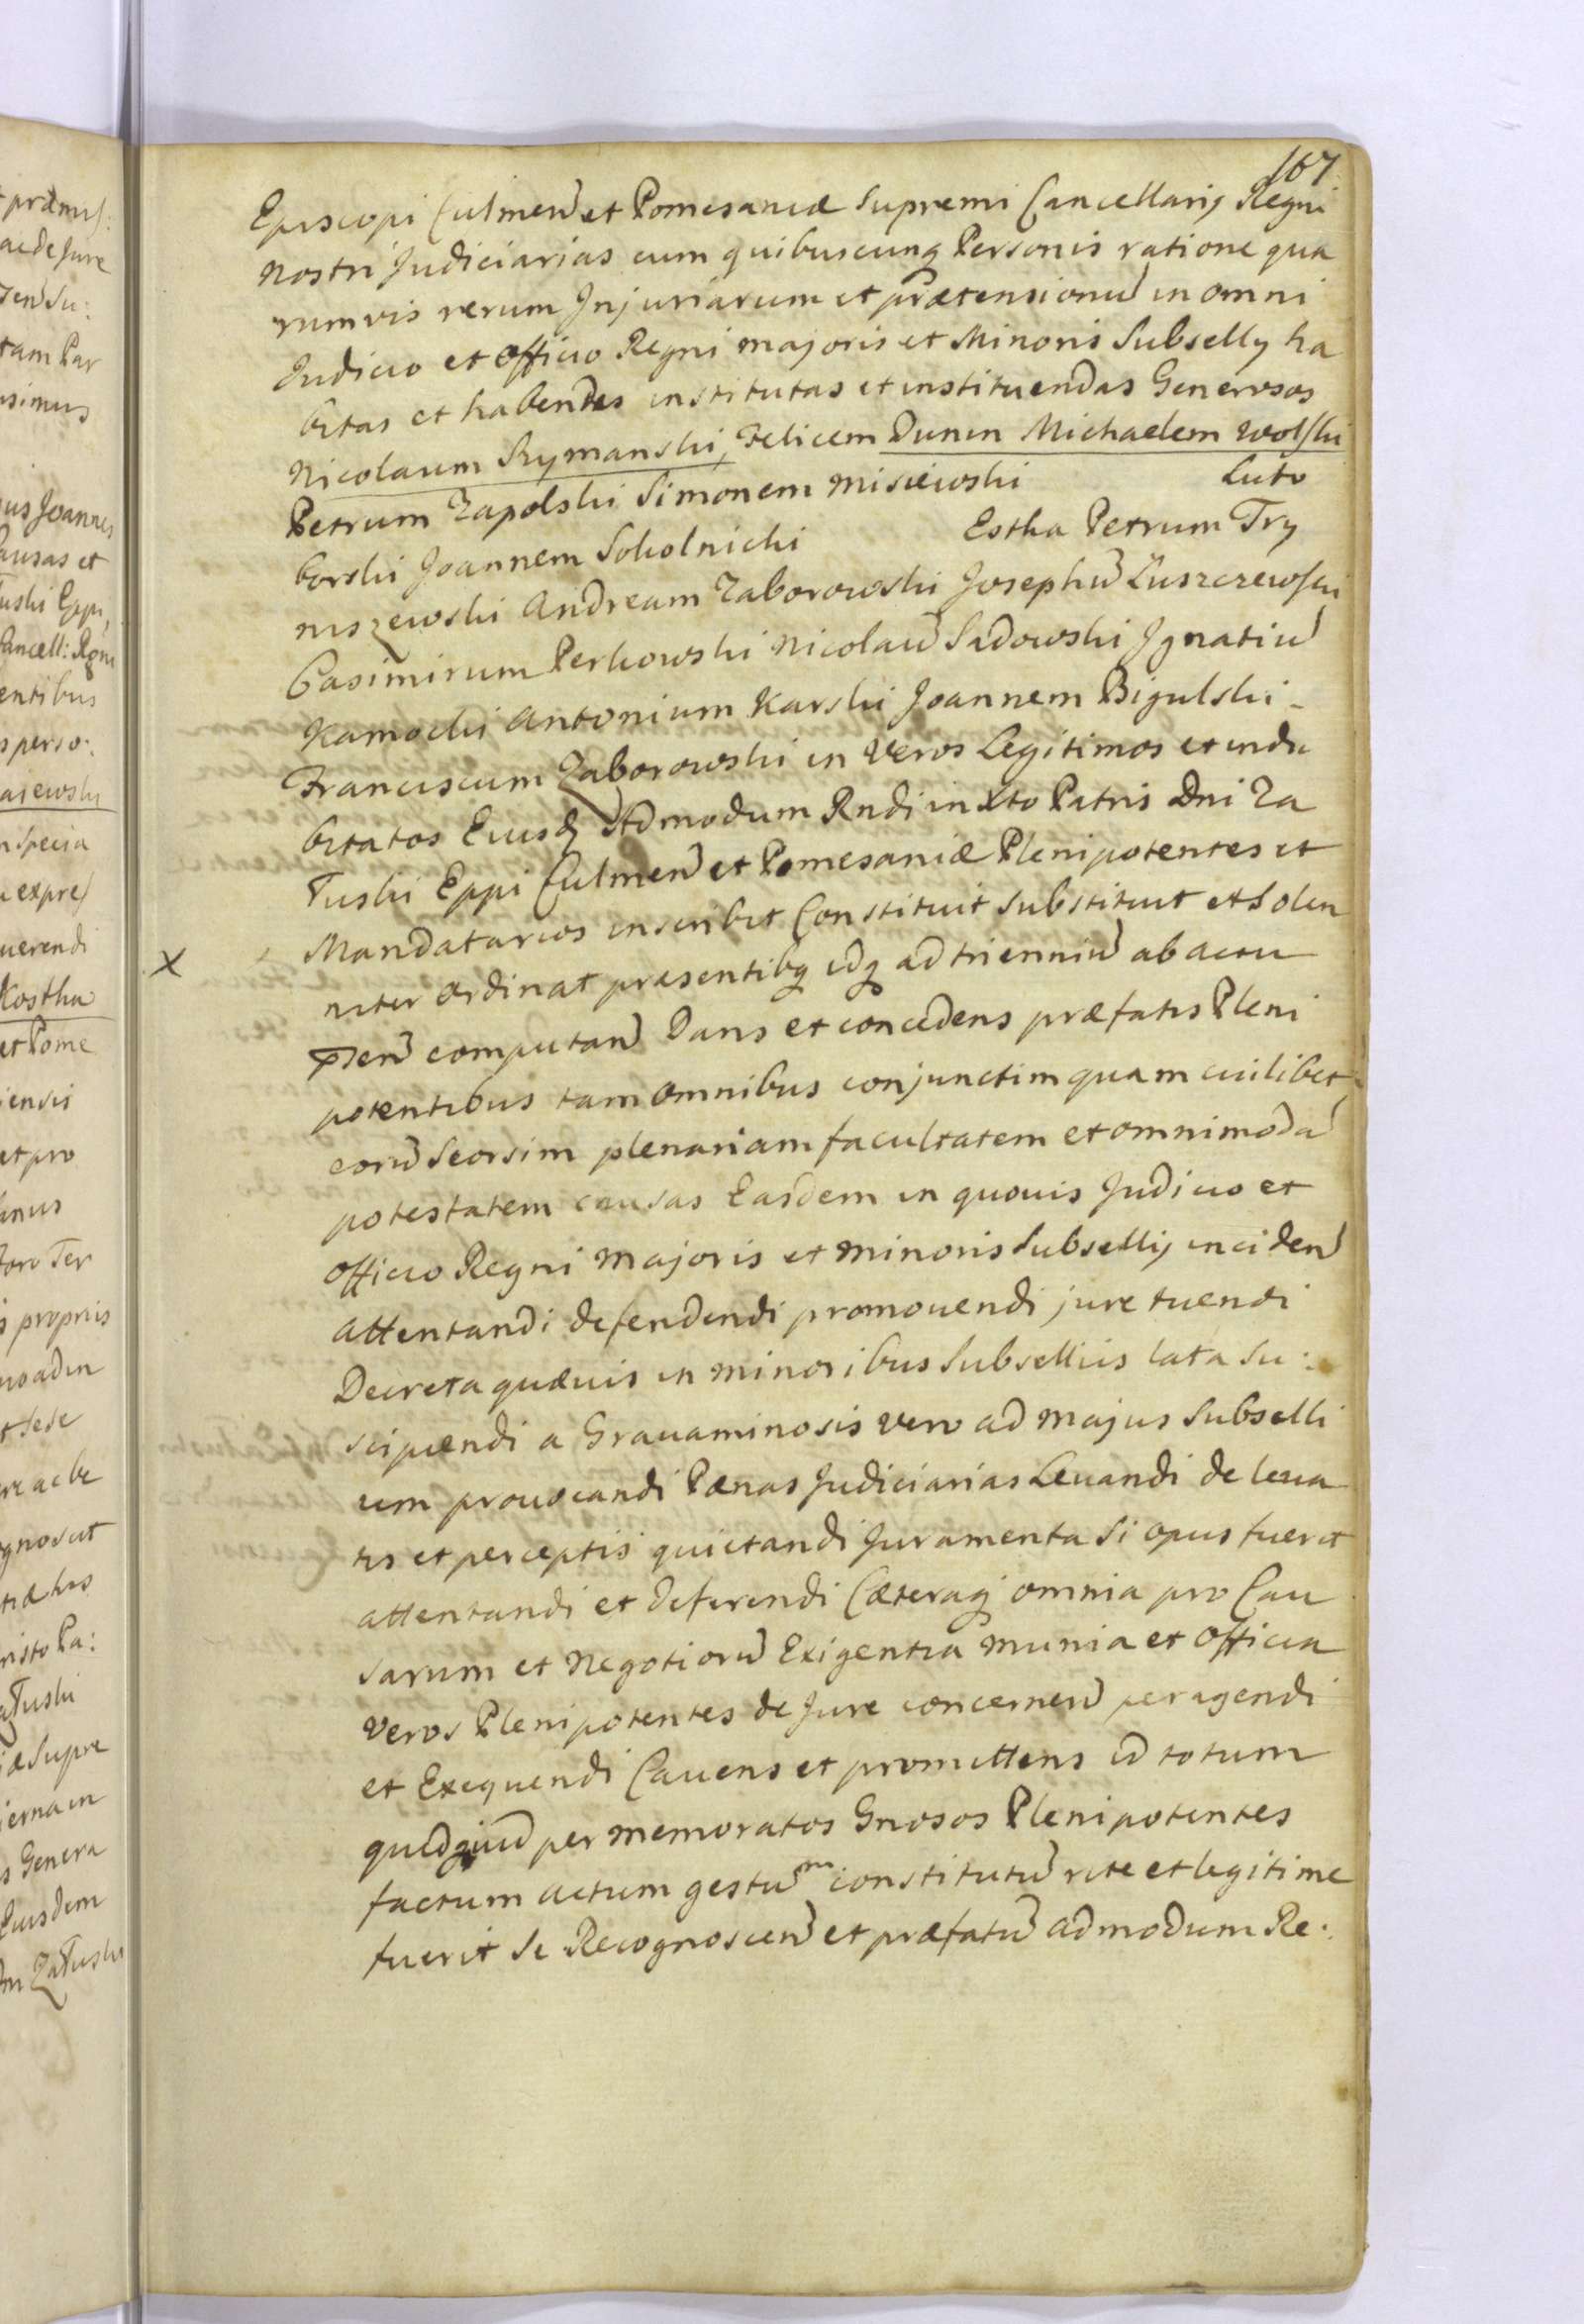 167
Episcopi Culmen et Pomesaniæ Supremi Cancellarij Regni
Nostri Judiciarias cum quibuscunq Personis ratione qua
rumvis rerum Injuriarum et prætensionu in omni
Judicio et Officio Regni majoris et Minoris Subsellij ha
bitas et habendas institutas et instituendas Generosos
Nicolaum Rymanski, Felicem Dunin Michaelem Wolski
Petrum Zapolski Simonem Misiewski Luto
borski Joannem Sokolnicki Estka Petrum Try
niszewski Andream Zaborowski Josephu Łuszczewski
Casimirum Perkowski Nicolau Sadowski Ignatiu
Kamocki Antonium Karski Joannem Bigulski
Franciscum Zaborowski in Veros Legitimos et indu
bitatos Eiusd Admodum Rndi in Xto Patris Dni Za
łuski Eppi Culmen et Pomesaniæ Plenipotentes et
Mandatarios inscribit Constituit Substituit et Solen
niter Ordinat præsentibq idq ad trienniu ab actu
pñen computan Dans et concedens præfatis Pleni
potentibus tam omnibus conjunctim quam cuilibet
eoru Seorsim plenariam facultatem et omnimoda
potestatem causas Easdem in quovis Judicio et
Officio Regni Majoris et minoris Subsellij inciden
Attentandi defendendi promovendi jure tuendi
Decreta quævis in minoribus Subselliis lata Su:
scipiendi a Gravaminosis vero ad Majus Subselli
um provocandi Pænas Judiciarias Levandi de leva
tis et perceptis quietandi Juramenta Si opus fuerit
attentandi et deferendi Cæteraq omnia pro Cau
sarum et Negotioru Exigentia Munia et Officia
Veros Plenipotentes de Jure concernen peragendi
et Exequendi Cavens et promittens id totum
quidquid per memoratos Gnosos Plenipotentes
factum actum gestum constitutu rite et legitime
fuerit Se Recognoscen et præfatu admodum Re:
X